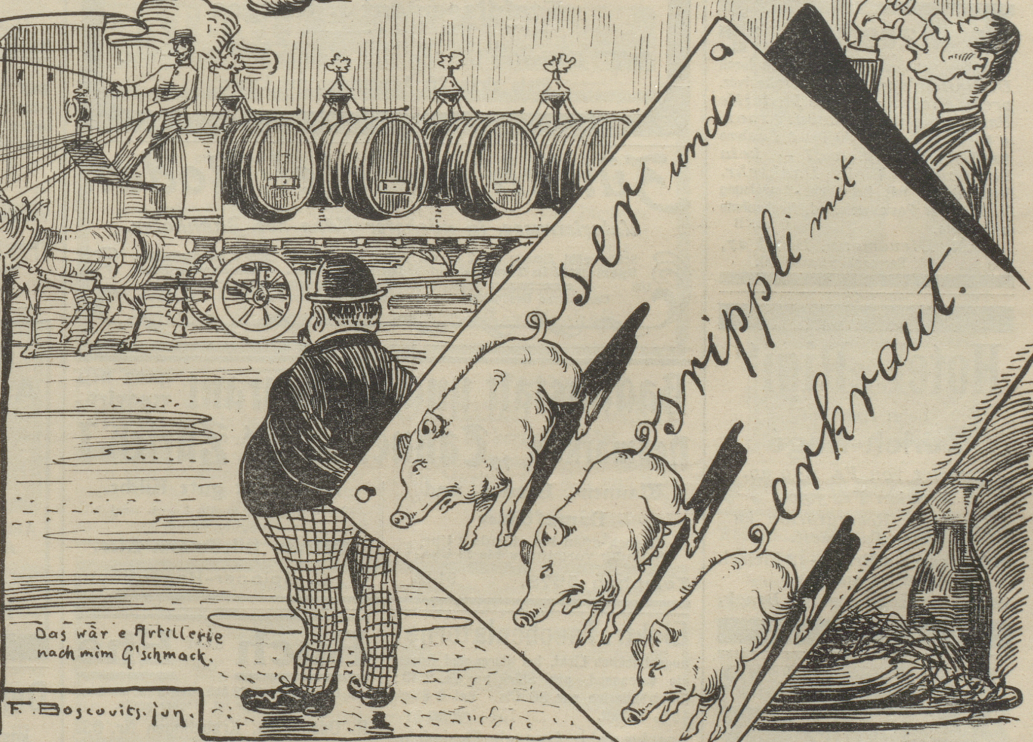 ser und
srippli mit
erkraut.
Das wär e Artillerie
nach mim G'schmack.
F. Boscovits. jun.